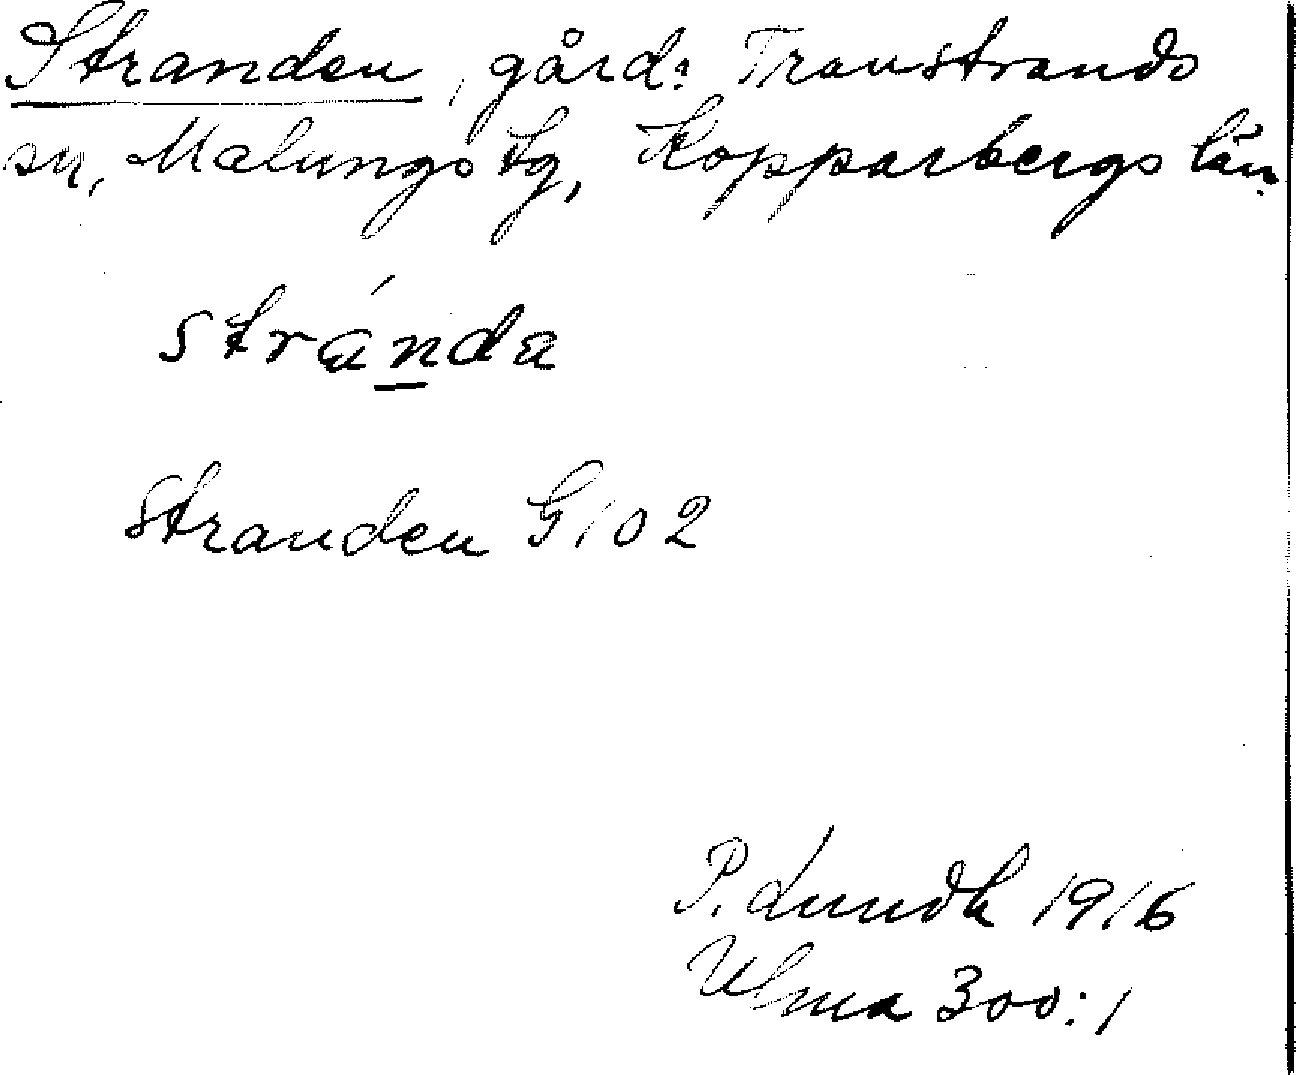 Stranden, gård: Transtrands
sn, Malungs tg, Kopparbergs län.
stránda
Stranden G 102
P. Lundk 1916
Ulma 300:1